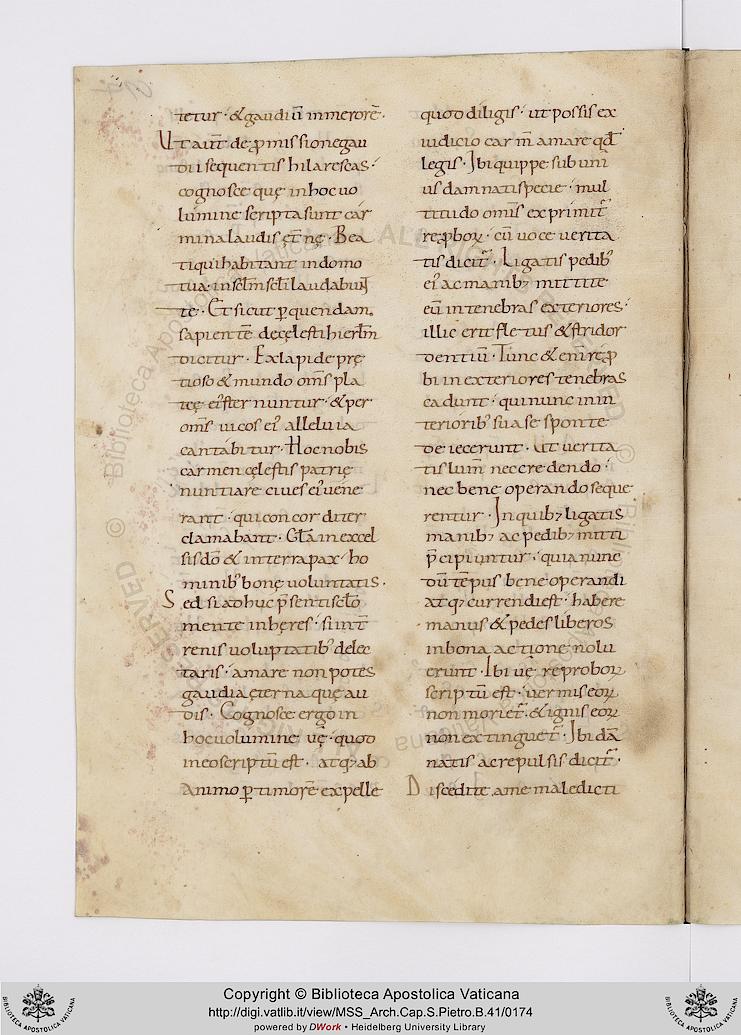 tetur · & gaudiū in merorē ·
Ut aut̄ de p̄missione gau
dii sequentis hilarescas ·
cognosce quę in hoc uo
lumine scripta sunt car
mina laudis ęt̄nę · Bea
ti qui habitant in domo
tua · in sc̄lm sc̄li laudabunt
te · Et sicut ꝑ quendam
sapientē de cęlesti hierl̄m
dicitur · Ex lapide prę
tioso & mundo om̄s pla
teę ei' sternuntur · & per
om̄s uicos ei' alleluia
cantabitur · Hoc nobis
carmen cęlestis patrię
nuntiare ciues ei' uene
rant · qui concorditer
clamabant · Gl̄a in excel
sis dō & in terra pax ho
minib' bonę uoluntatis ·
Sed si adhuc p̄sentis sc̄lo
mente inhęres · si ter
renis uoluptatib' delec
taris · amare non potes
gaudia ęterna quę au
dis · Cognosce ergo in
hoc uolumine uę · quod
in eo scriptū est · atq; ab
animo ꝑ timorē expelle
quod diligis · ut possis ex
iudicio carm̄ amare qd̄
legis · Ibi quippe sub uni
us damnati specie · mul
titudo om̄is exprimit̄
reꝓboꝝ · cū uoce uerita
tis dicit̄ · Ligatis pedib'
ei' ac manib; mittite
eū in tenebras exteriores ·
illic erit fletus & stridor
dentiū · Tunc & eni reꝓ
bi in exteriores tenebras
cadunt · qui nunc in in
teriorib' sua se sponte
deiecerunt · ut uerita
tis lum̄ nec credendo ·
nec bene operando seque
rentur · In quib; ligatis
manib; ac pedib; mitti
p̄cipiuntur · quia nunc
dū tēpus bene operandi
atq; currendi est · habere
manus & pedes liberos
in bona actione nolu
erunt · Ibi uę reproboꝝ
scriptū est · uermis eoꝝ
non moriet̄ · & ignis eoꝝ
non extinguet̄ · Ibi dā
natis ac repulsis dicit̄ ·
Discedite a me maledicti
Copyright © Biblioteca Apostolica Vaticana
http://digi.vatlib.it/view/MSS_Arch.Cap.S.Pietro.B.41/0174
powered by DWork • Heidelberg University Library